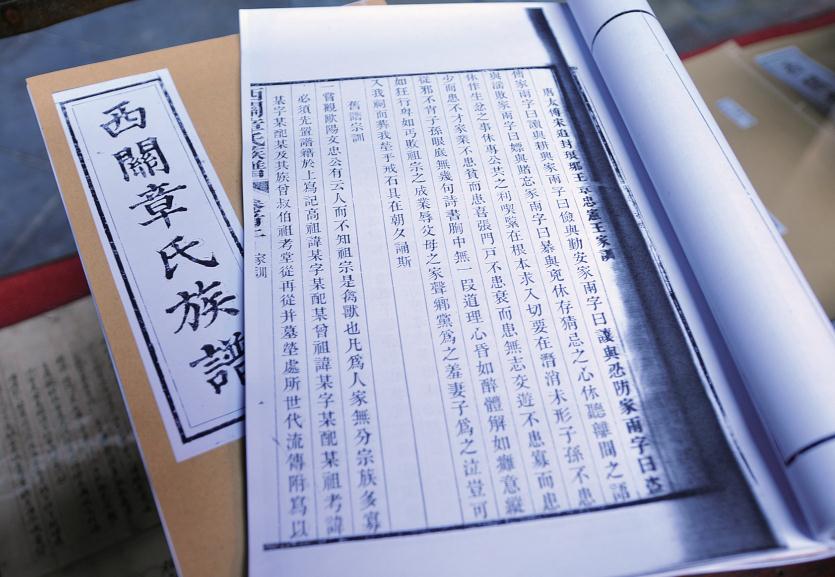 唐太傅宋追封琅邪王章忠憲王家訓
傳家兩字曰讀與耕興家兩字曰儉與勤安家兩字曰讓與忍防家兩字曰盜
與敗家兩字曰嫖與賭忘家兩字曰暴與兇休存猜忌之心休聽離間之語
休作生忿之事休專公共之利喫緊在根本求入切要在潛消未形子孫不患
少而患不才家業不患貧而患喜張門戸不患衰而患無志交遊不患寡而患
從邪不肖子孫眼底無幾句詩書胸中無一段道理心昏如醉體解如癱意縱
如狂行卑如丐敗祖宗之成業辱父母之家聲鄉黨爲之羞妻子爲之泣豈可
入我祠而葬我塋乎戒石具在朝夕誦斯
舊譜宗訓
嘗觀歐陽文忠公有云人而不知祖宗是禽獸也凡爲人家無分宗族多寡
必須先置譜籍於上寫記高祖諱某字某配某曾祖諱某字某配某祖考諱
某字某配某及其族曾叔伯祖考堂從再從幷墓塋處所世代流傳附爲以
西關章氏族譜 家訓
西關章氏族譜